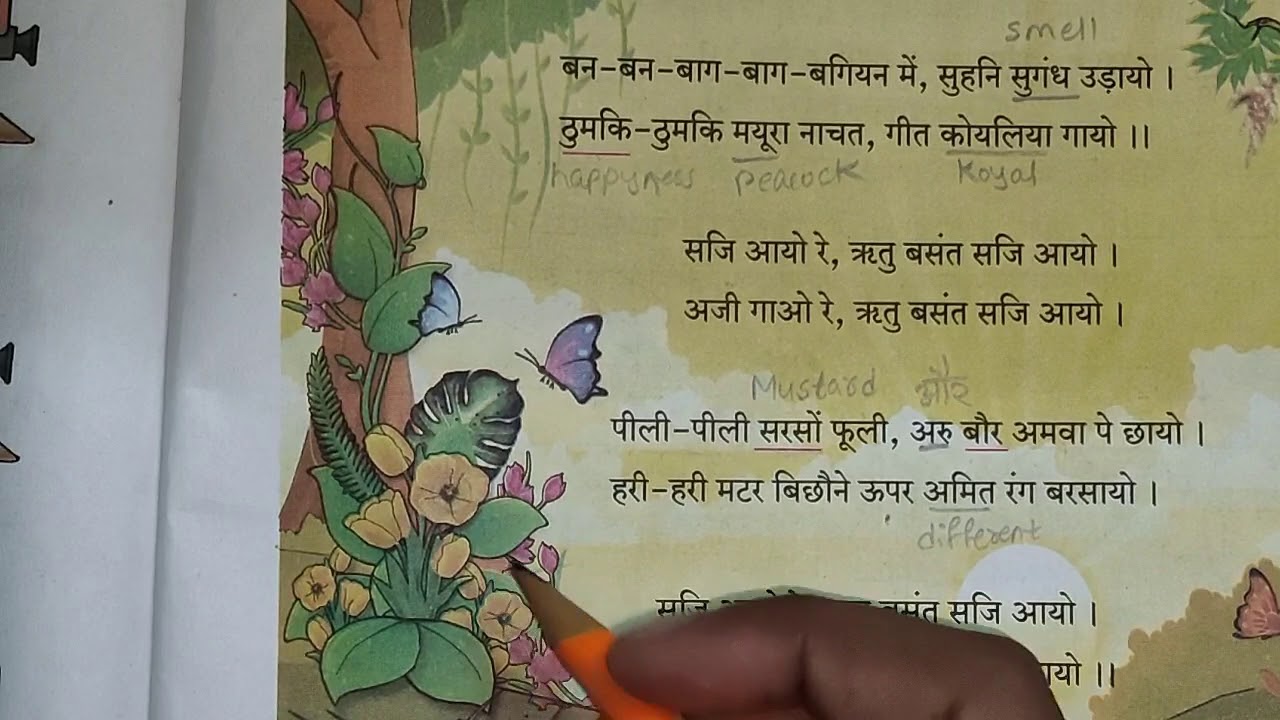 smell
बन-बन-बाग-बाग-बगियन में, सुहनि सुगंध उड़ायो ।
ठुमकि-ठुमकि मयूरा नाचत, गीत कोयलिया गायो ।।
happyness peacock Koyal
सजि आयो रे, ऋतु बसंत सजि आयो ।
अजी गाओ रे, ऋतु बसंत सजि आयो ।
Mustard और
पीली-पीली सरसों फूली, अरु बौर अमवा पे छायो ।
हरी-हरी मटर बिछौने ऊपर अमित रंग बरसायो ।
different
सजि बसंत सजि आयो ।
यो ।।